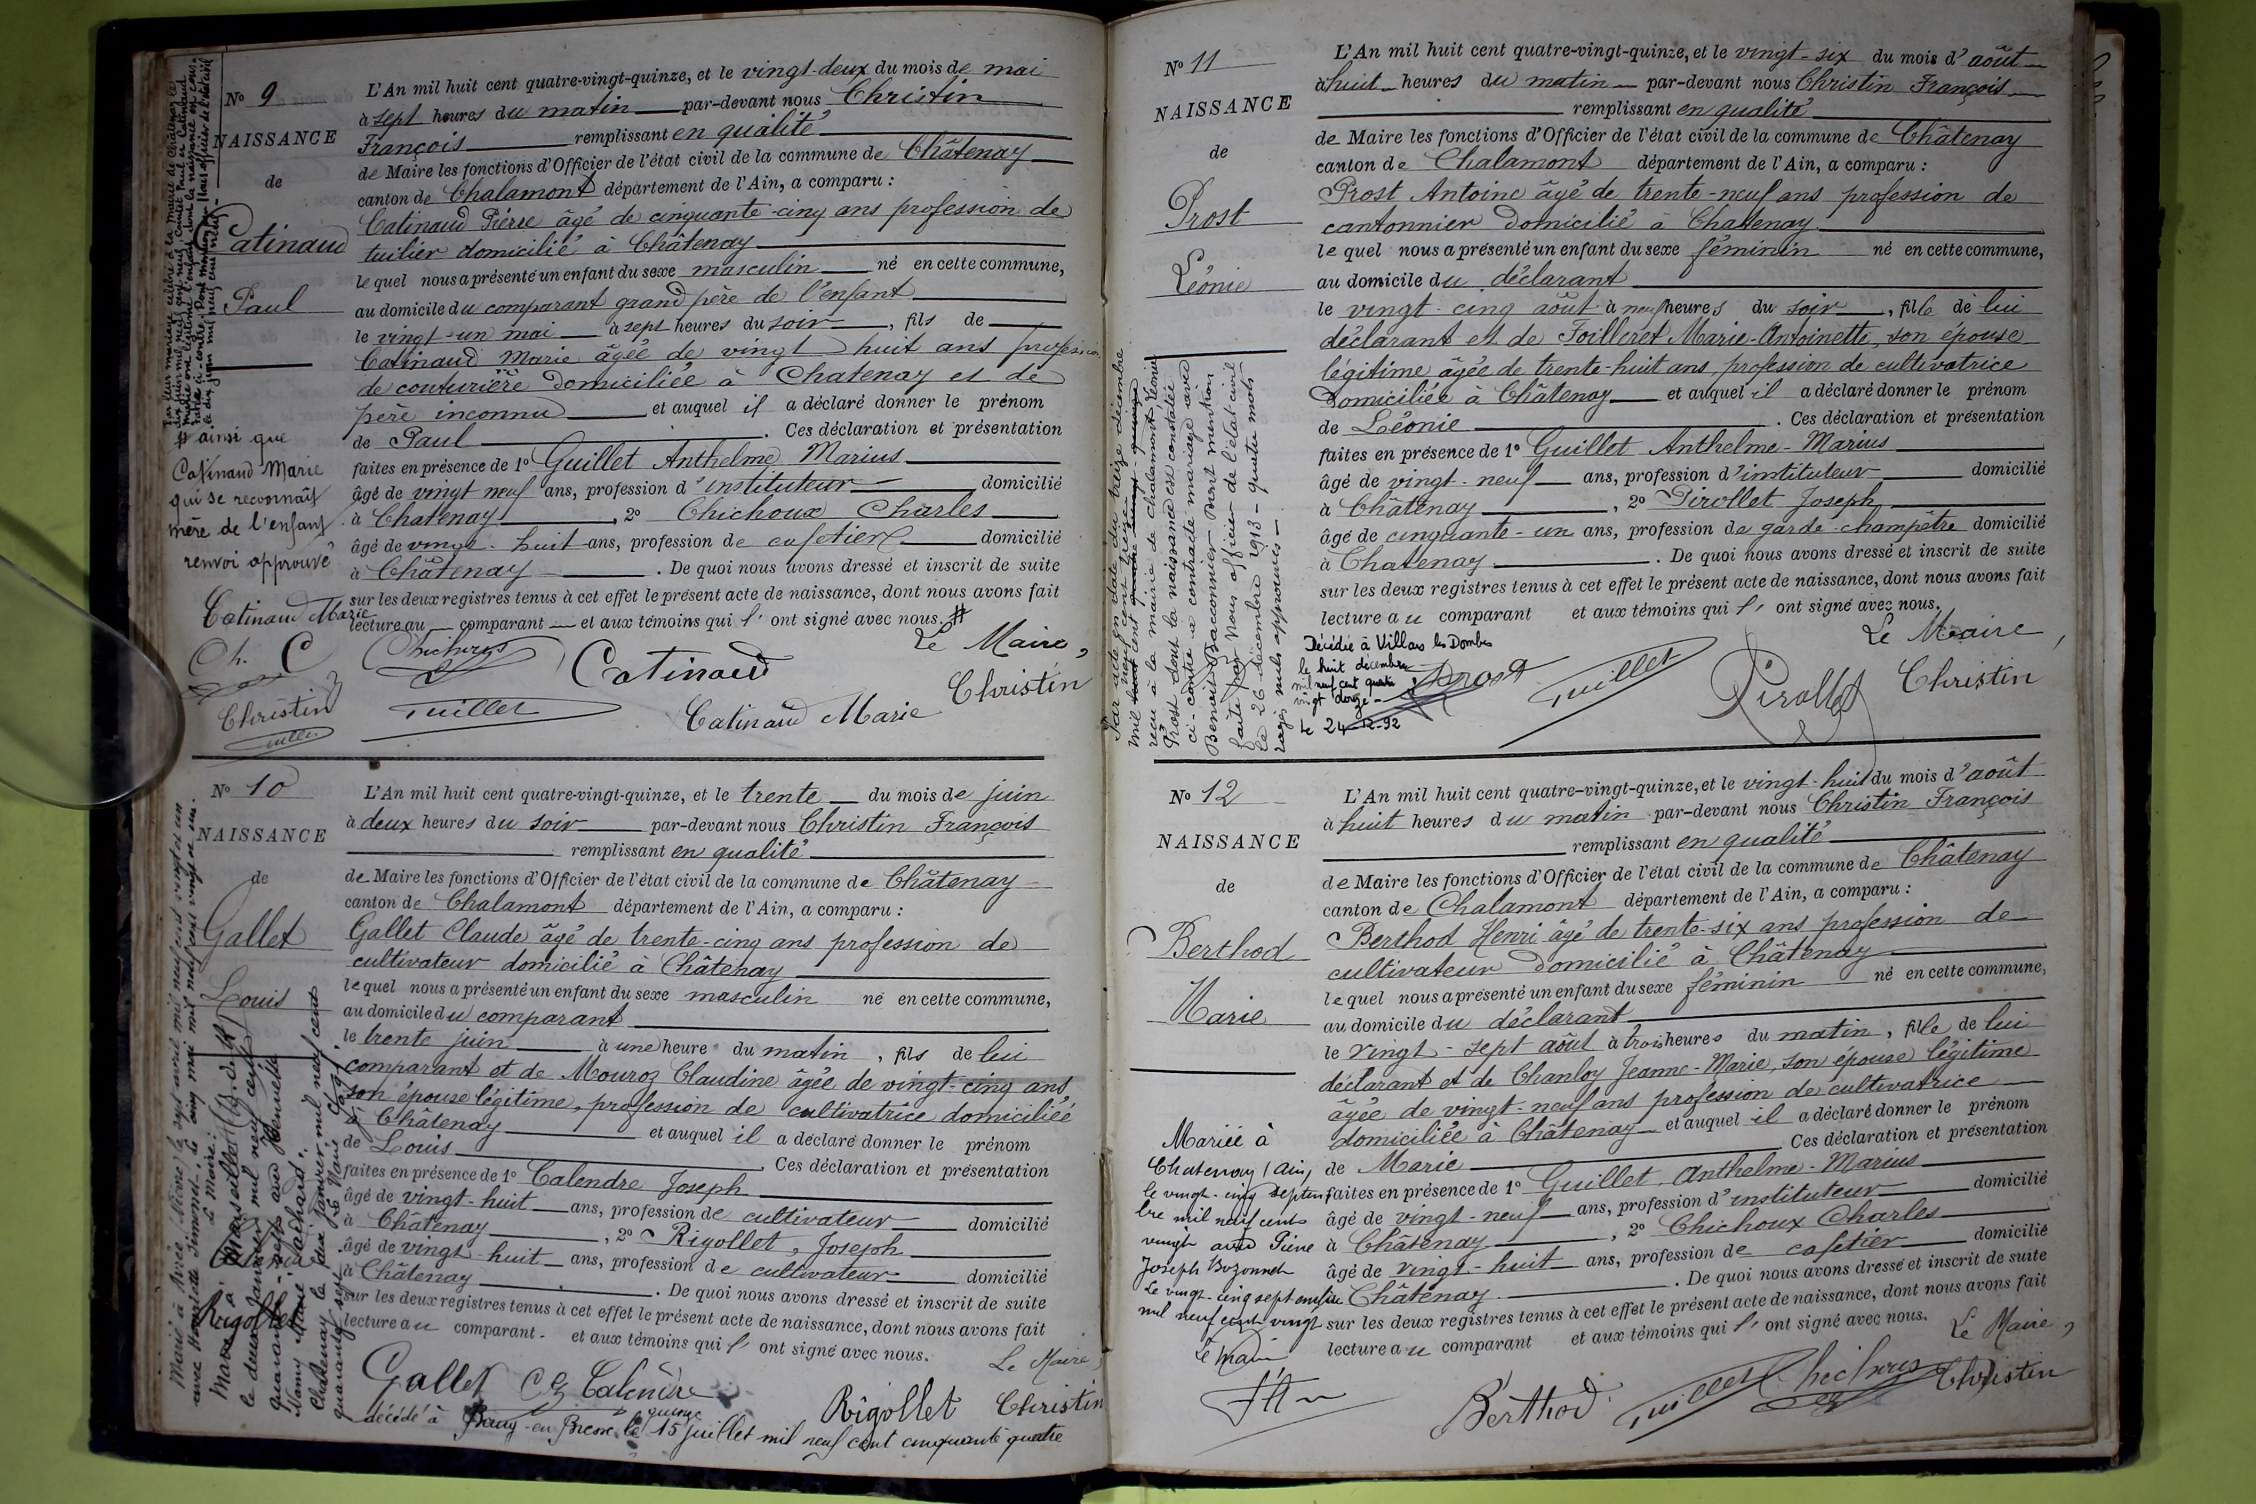 N° 9
NAISSANCE
de
Catinaud
Paul
# ainsi que
Catinaud Marie
qui se reconnaît
mère de l'enfant
renvoi approuvé
Catinaud Marie
Ch. C
Christin
L'An mil huit cent quatre-vingt-quinze, et le vingt-deux du mois de mai
à sept heures du matin par-devant nous Christin
François remplissant en qualité
de Maire les fonctions d'Officier de l'état civil de la commune de Châtenay
canton de Chalamont département de l'Ain, a comparu :
Catinaud Pierre âgé de cinquante-cinq ans profession de
tuilier domicilié à Châtenay
lequel nous a présenté un enfant du sexe masculin né en cette commune,
au domicile du comparant grand père de l'enfant
le vingt-un mai à sept heures du soir, fils de
Catinaud Marie âgée de vingt huit ans profession
de couturière domiciliée à Chatenay et de
père inconnu et auquel il a déclaré donner le prénom
de Paul. Ces déclaration et présentation
faites en présence de 1° Guillet Anthelme Marius
âgé de vingt neuf ans, profession d'instituteur domicilié
à Chatenay, 2° Chichoux Charles
âgé de vingt-huit ans, profession de cafetier domicilié
à Châtenay. De quoi nous avons dressé et inscrit de suite
sur les deux registres tenus à cet effet le présent acte de naissance, dont nous avons fait
lecture au comparant et aux témoins qui l' ont signé avec nous. #
Le Maire,
Chichoux Catinaud Christin
Guillet Catinaud Marie
N° 10
NAISSANCE
de
Gallet
Louis
L'An mil huit cent quatre-vingt-quinze, et le trente du mois de juin
à deux heures du soir par-devant nous Christin François
remplissant en qualité
de Maire les fonctions d'Officier de l'état civil de la commune de Châtenay
canton de Chalamont département de l'Ain, a comparu :
Gallet Claude âgé de trente-cinq ans profession de
cultivateur domicilié à Châtenay
lequel nous a présenté un enfant du sexe masculin né en cette commune,
au domicile du comparant
le trente juin à une heure du matin, fils de lui
comparant et de Mouroz Claudine âgée de vingt-cinq ans
son épouse légitime, profession de cultivatrice domiciliée
à Châtenay et auquel il a déclaré donner le prénom
de Louis. Ces déclaration et présentation
faites en présence de 1° Calendre Joseph
âgé de vingt-huit ans, profession de cultivateur domicilié
à Châtenay, 2° Rigollet, Joseph
âgé de vingt-huit ans, profession de cultivateur domicilié
à Châtenay. De quoi nous avons dressé et inscrit de suite
sur les deux registres tenus à cet effet le présent acte de naissance, dont nous avons fait
lecture au comparant et aux témoins qui l' ont signé avec nous.
Le Maire,
Gallet Calendre Rigollet Christin
décédé à Bourg-en-Bresse le 15 juillet mil neuf cent cinquante quatre
N° 11
NAISSANCE
de
Prost
Léonie
Par acte en date du treize décembre
reçu à la mairie de Chalamont Léonie
Prost dont la naissance est constatée
ci-contre a contracté mariage avec
Benoit Baconnier. Dont mention
faite par Nous officier de l'état civil
le 26 décembre 1913 - quatre mots
rayés nuls approuvés -
L'An mil huit cent quatre-vingt-quinze, et le vingt-six du mois d'août
à huit heures du matin par-devant nous Christin François
remplissant en qualité
de Maire les fonctions d'Officier de l'état civil de la commune de Châtenay
canton de Chalamont département de l'Ain, a comparu :
Prost Antoine âgé de trente-neuf ans profession de
cantonnier domicilié à Chatenay
lequel nous a présenté un enfant du sexe féminin né en cette commune,
au domicile du déclarant
le vingt-cinq août à neuf heures du soir, fille de lui
déclarant et de Joilleret Marie-Antoinette, son épouse
légitime âgée de trente-huit ans, profession de cultivatrice
domiciliée à Châtenay et auquel il a déclaré donner le prénom
de Léonie. Ces déclaration et présentation
faites en présence de 1° Guillet Anthelme-Marius
âgé de vingt-neuf ans, profession d'instituteur domicilié
à Châtenay, 2° Pirollet Joseph
âgé de cinquante-un ans, profession de garde-champêtre domicilié
à Chatenay. De quoi nous avons dressé et inscrit de suite
sur les deux registres tenus à cet effet le présent acte de naissance, dont nous avons fait
lecture au comparant et aux témoins qui l' ont signé avec nous.
Décédée à Villars les Dombes
le huit décembre
mil neuf cent quatre
vingt douze -
Le 24-12-92
Le Maire,
Prost Guillet Pirollet Christin
N° 12
NAISSANCE
de
Berthod
Marie
Mariée à
Chatenay (Ain)
le vingt-cinq septem
bre mil neuf cent
vingt avec Pierre
Joseph Bozonnet
Le vingt-cinq septembre
mil neuf cent vingt
Le Maire
L'An mil huit cent quatre-vingt-quinze, et le vingt-huit du mois d'août
à huit heures du matin par-devant nous Christin François
remplissant en qualité
de Maire les fonctions d'Officier de l'état civil de la commune de Châtenay
canton de Chalamont département de l'Ain, a comparu :
Berthod Henri âgé de trente-six ans profession de
cultivateur domicilié à Châtenay
lequel nous a présenté un enfant du sexe féminin né en cette commune,
au domicile du déclarant
le vingt-sept août à trois heures du matin, fille de lui
déclarant et de Chanloy Jeanne-Marie, son épouse légitime
âgée de vingt-neuf ans profession de cultivatrice
domiciliée à Châtenay et auquel il a déclaré donner le prénom
de Marie Ces déclaration et présentation
faites en présence de 1° Guillet Anthelme-Marius
âgé de vingt-neuf ans, profession d'instituteur domicilié
à Châtenay, 2° Chichoux Charles
âgé de vingt-huit ans, profession de cafetier domicilié
à Châtenay. De quoi nous avons dressé et inscrit de suite
sur les deux registres tenus à cet effet le présent acte de naissance, dont nous avons fait
lecture au comparant et aux témoins qui l' ont signé avec nous.
Le Maire,
Berthod Guillet Chichoux Christin